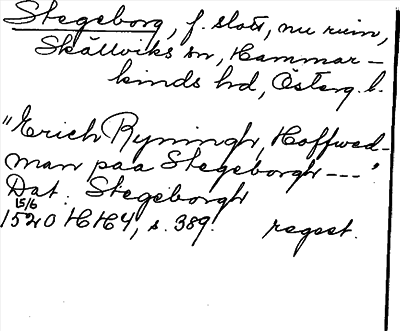 Stegeborg, f. slott, nu ruin,
Skällviks sn, Hammar-
kinds hd, Österg. l.
"Erich Ryningh, Hoffwed-
man paa Stegeborgh ---".
Dat. Stegeborgh
15/6
1520 HH4, s. 389. regest.